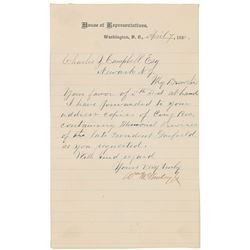 House of Representatives,
Washington, D. C., April 7, 188
Charles J. Campbell Esq
Newark N.J.
My Dear Sir
Your favor of 5th inst at hand
I have forwarded to your
address copies of Cong Rec
containing Memorial Services
of the late President Garfield
as you requested.
With kind regard
Yours very truly
Wm